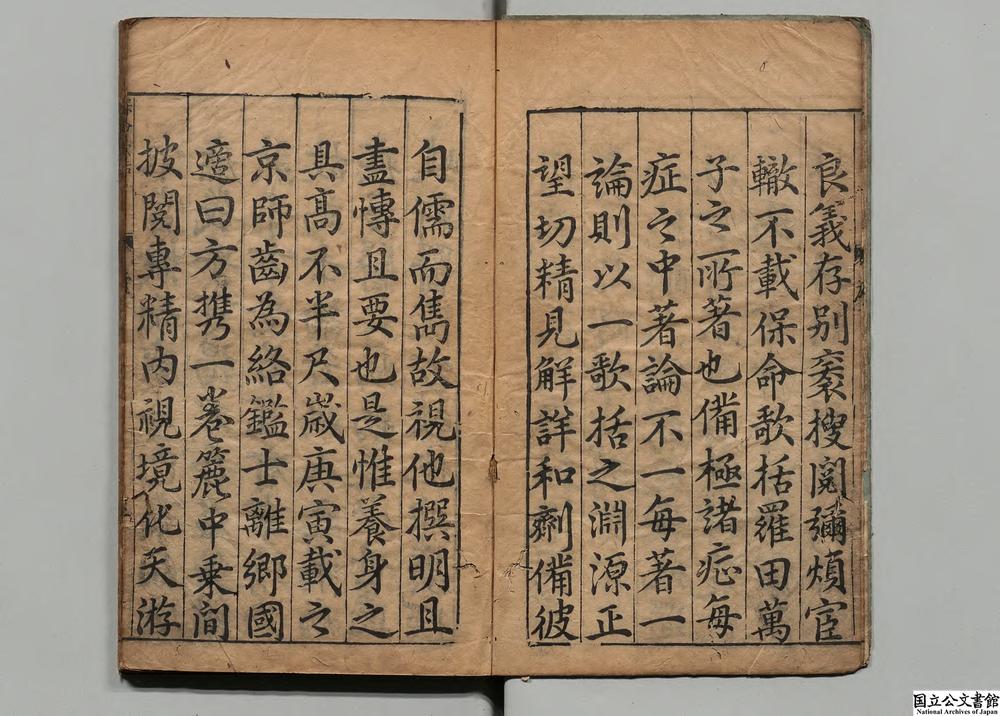 良義存別袠搜閱彌煩宦
轍不載保命歌括羅田萬
子之所著也備極諸症每
症之中著論不一每著一
論則以一歌括之淵源正
望切精見解詳和劑備彼
自儒而雋故視他撰明且
盡慱且要也是惟養身之
具高不半尺嵗庚寅載之
京師齒為絡鑑士離鄉國
適曰方携一卷簏中乗間
披閱專精内視境化天游
国立公文書館
National Archives of Japan